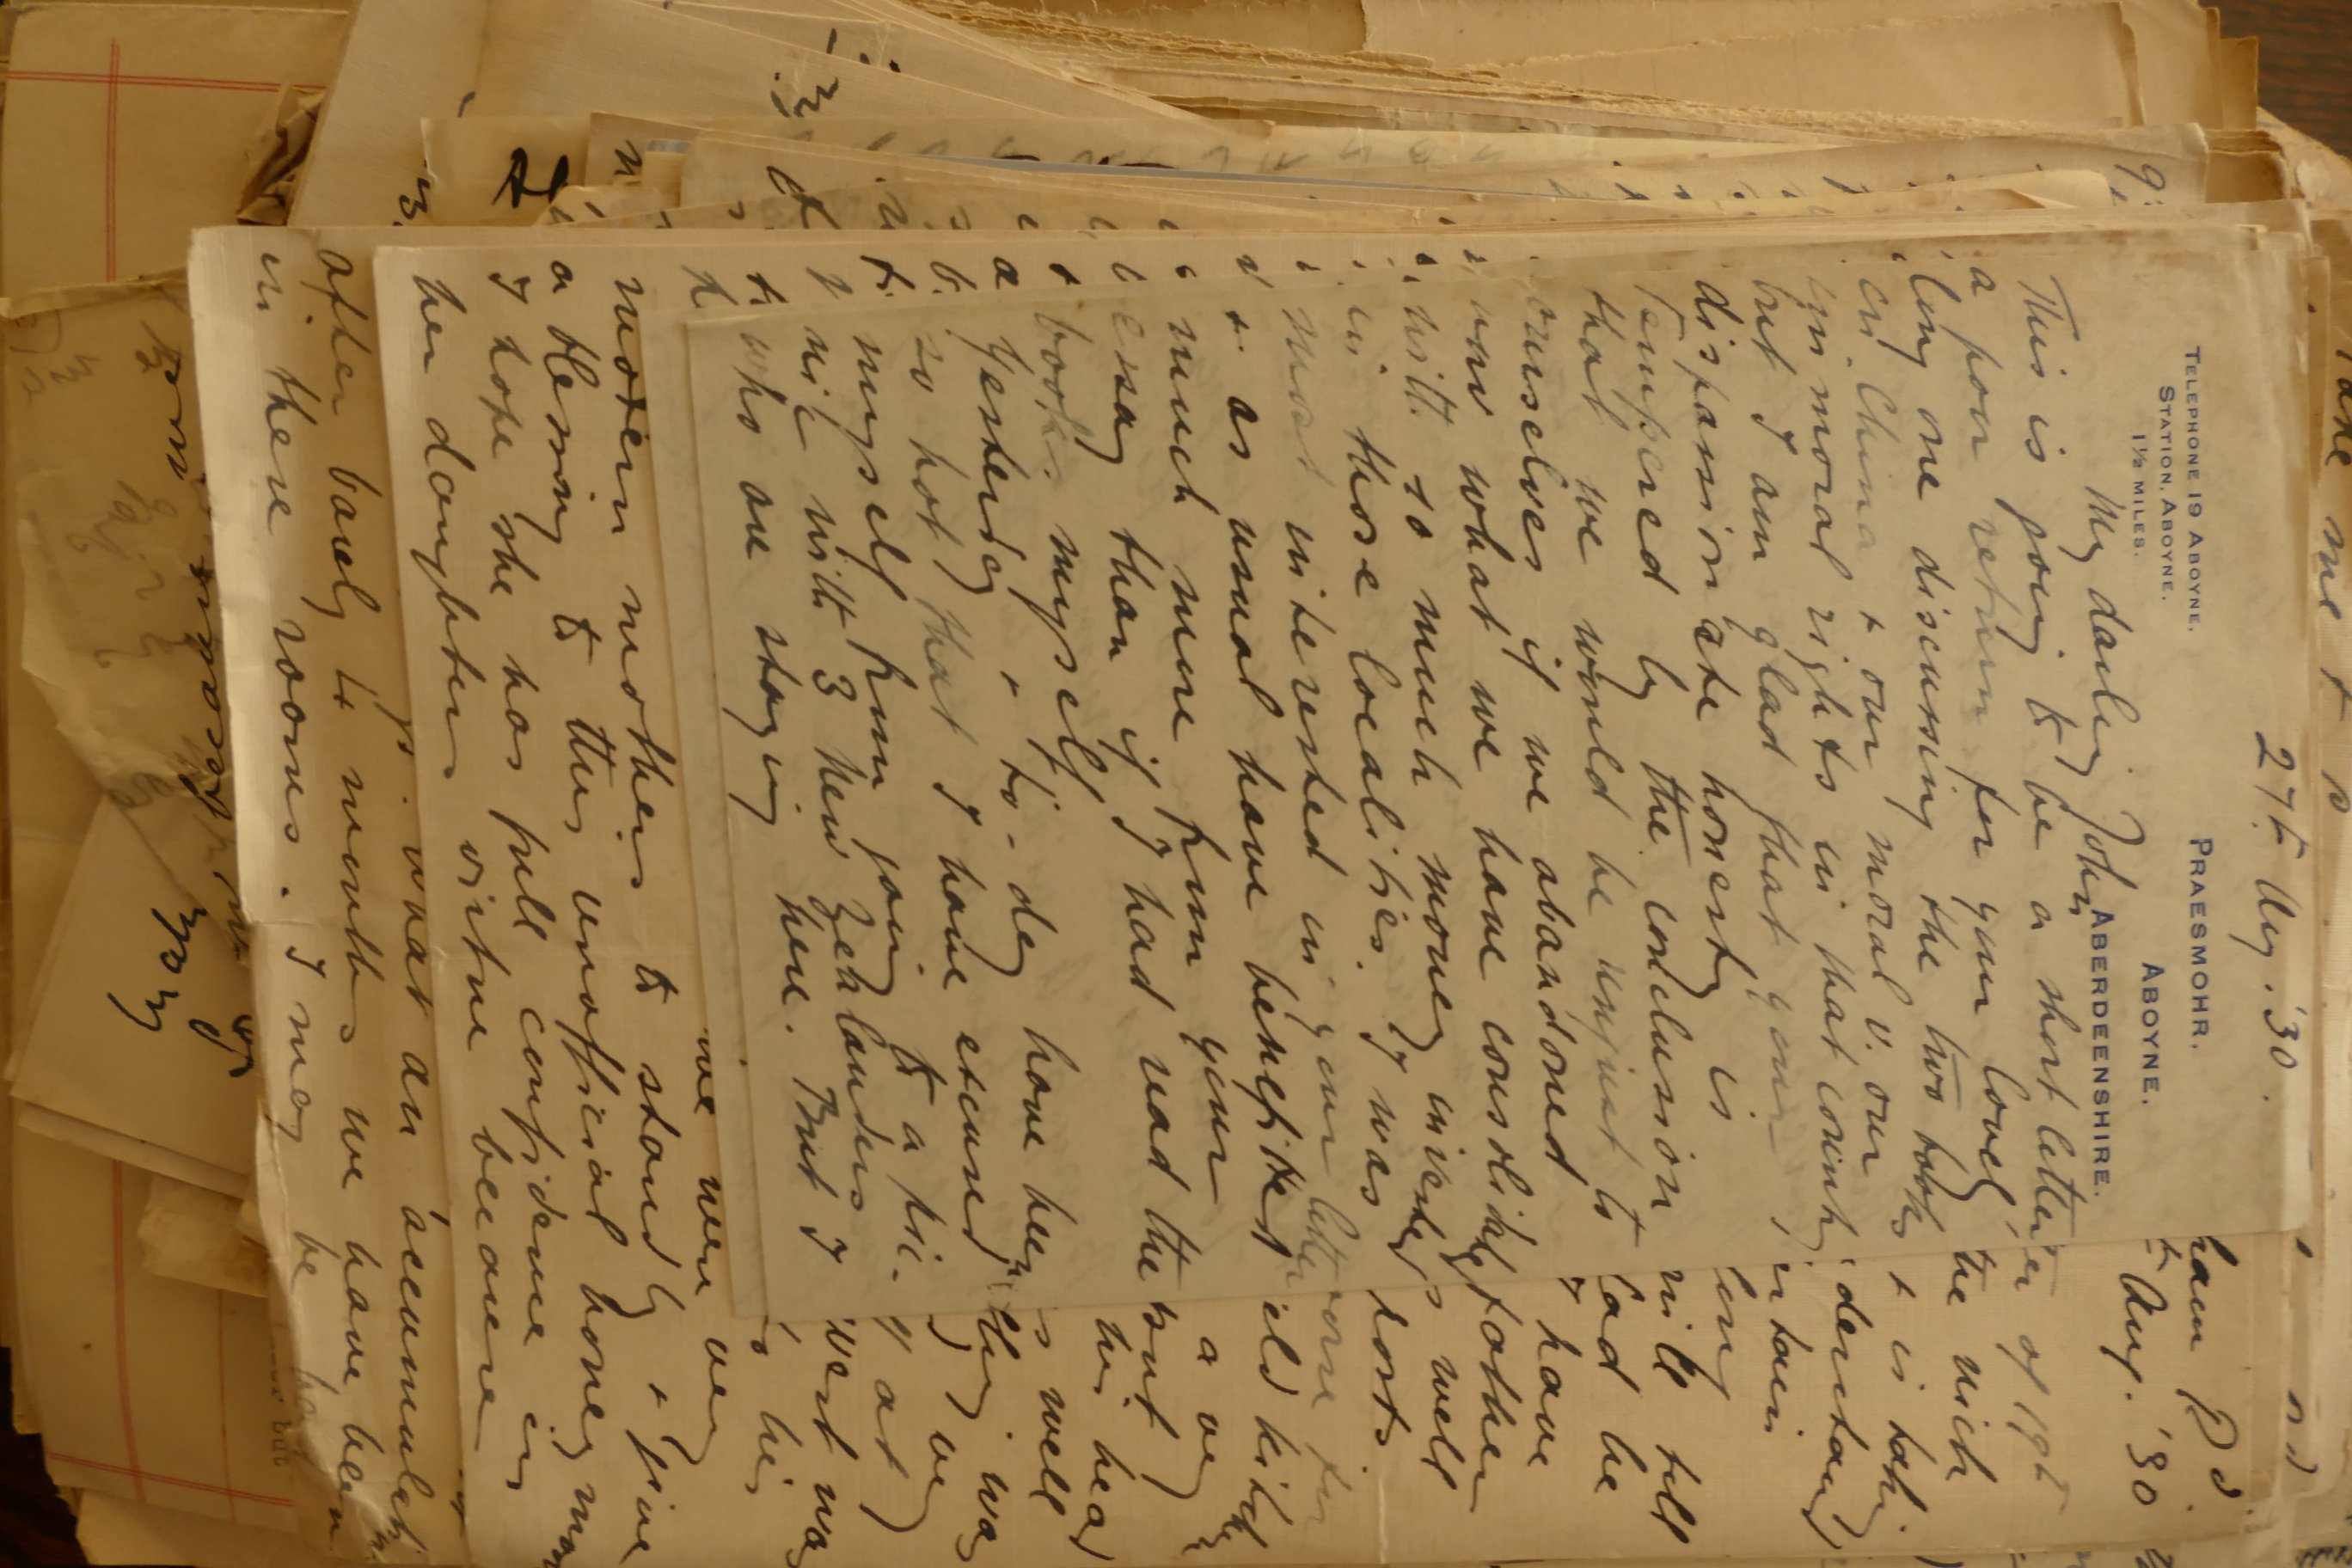 take me +
27t. Aug. '30.
TELEPHONE 19 ABOYNE.
STATION, ABOYNE.
1½ MILES.
PRAESMOHR.
ABOYNE.
ABERDEENSHIRE.
My darling John
This is going to be a short letter,
a poor return for your lovely
long one discussing the two books
on China + our moral v. our
immoral rights in that country
but I am glad that your
dispassionate honesty is
tempered by the conclusion
that we would be unjust to
ourselves if we abandoned
now what we have consolidated
with so much money invested
in those localities. I was
most interested in your letter
+ as usual have benefitted
much more from your
essay than if I had read the
books myself.
Yesterday + to-day have been
so hot that I have excused
myself from going to a pic-
nic with 3 New Zealanders
who are staying here. But I
ham Rd.
Aug. '30
er of 19t
the rich
+ is taking
derstand
rtain
long
will tell
lad he
I have
father
s well
hosts.
orse for
eld kitchen
a very
but
his head
s well
thing was
very
at
west was
to his
we were very
modern mothers to stand by + give
a blessing to this unofficial honeymoon
I hope she has full confidence in
her daughters virtue because
what an accumulation
after barely 4 months we have been
in these rooms. I may be
but